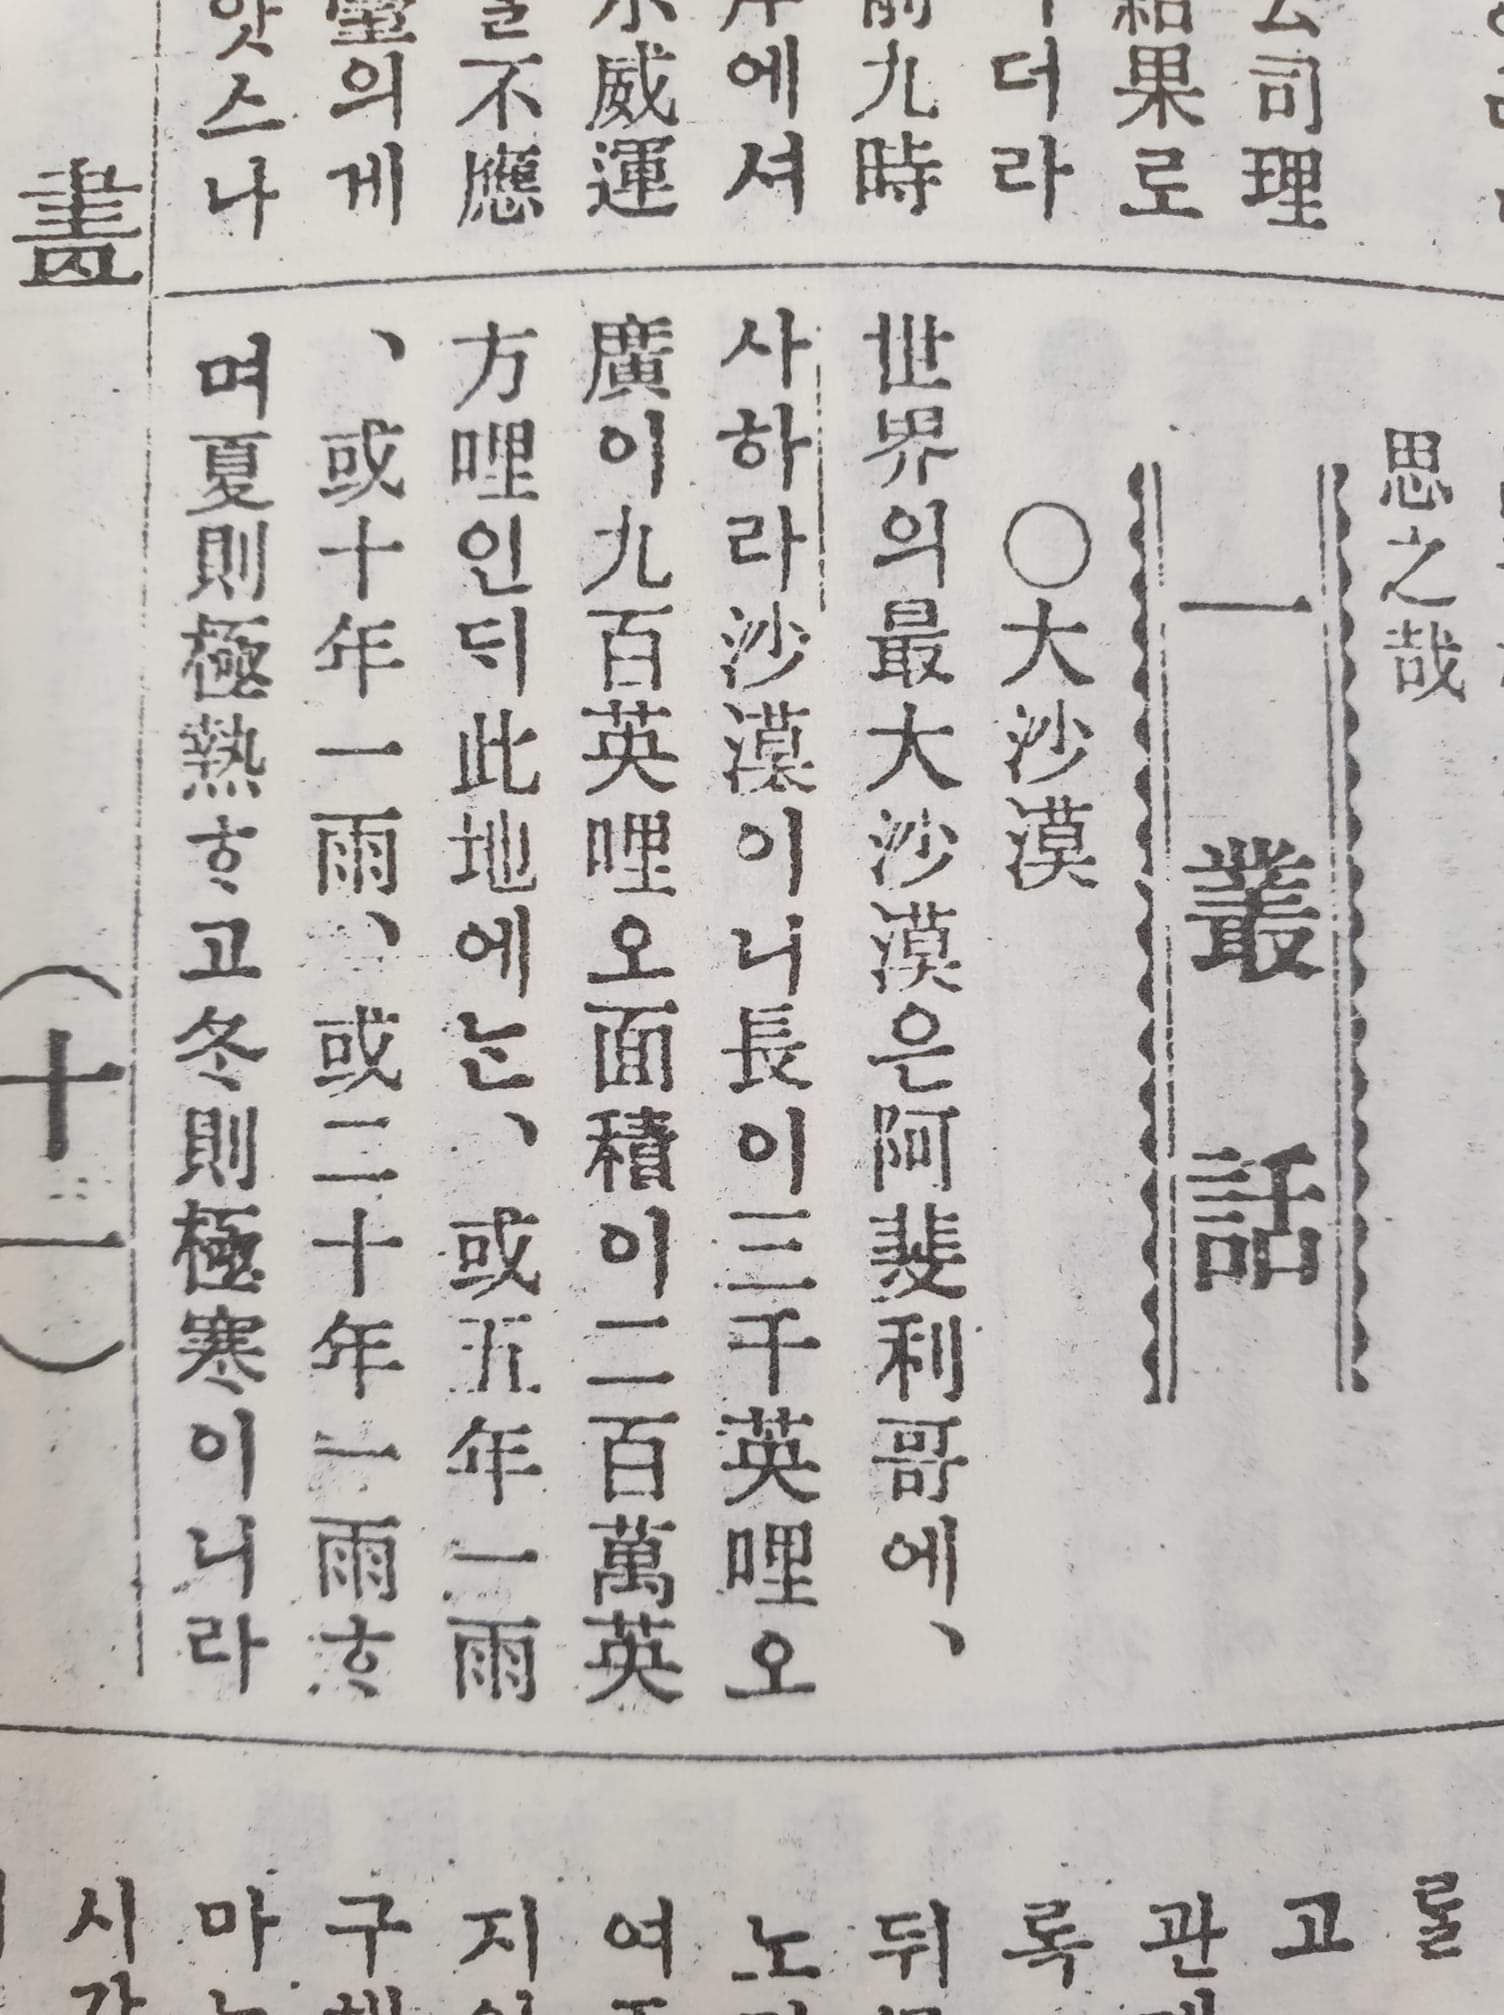 公司理
結果로
더라
前九時
에셔
威運
不應
의게
앗스나
思之哉
一 叢 話
〇大沙漠
世界의最大沙漠은阿斐利哥에、
사하라沙漠이니長이三千英哩오
廣이九百英哩오面積이二百萬英
方哩인ᄃᆡ此地에ᄂᆞᆫ、或五年一雨
、或十年一雨、或二十年一雨ᄒᆞ
며夏則極熱ᄒᆞ고冬則極寒이니라
(十一)
롤
고
관
록
뒤
노
여
지
구
마
시